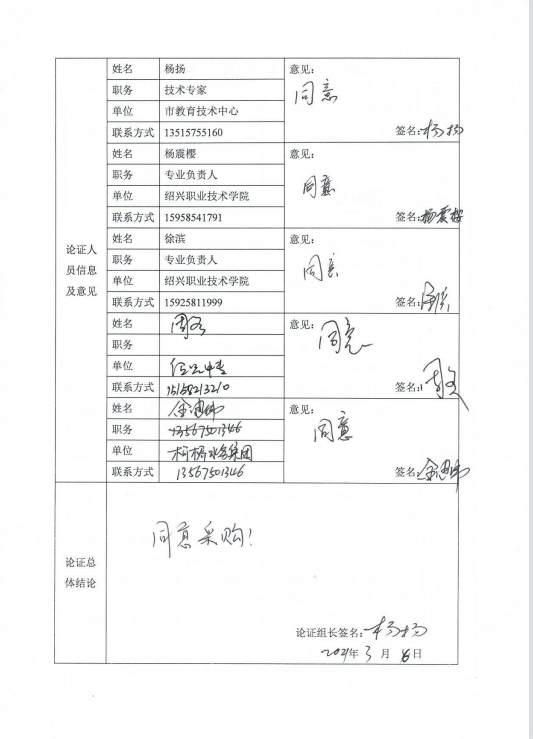 姓名 杨扬 意见:
职务 技术专家 同意
单位 市教育技术中心
联系方式 13515755160 签名: 杨扬
姓名 杨震樱 意见:
职务 专业负责人 同意
单位 绍兴职业技术学院
联系方式 15958541791 签名: 杨震樱
论证人
员信息
及意见
姓名 徐滨 意见:
职务 专业负责人 同意
单位 绍兴职业技术学院
联系方式 15925811999 签名:
姓名 意见:
职务 同意
单位
联系方式 15158213210 签名:
姓名 意见:
职务 13567501346 同意
单位 柯桥水务集团
联系方式 13567501346 签名:
论证总
体结论
同意采购!
论证组长签名: 杨扬
2021年 3 月 16 日